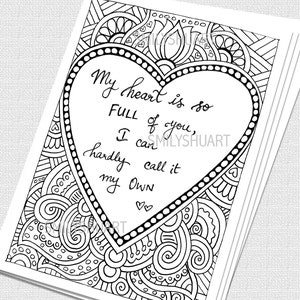 My heart is so
FULL of you,
I can
©EMILYSHUART
hardly call it
my OWN